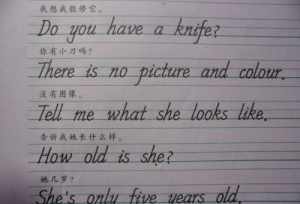 我想我能修它。
Do you have a knife?
你有小刀吗?
There is no picture and colour.
没有图像。
Tell me what she looks like.
告诉我她长什么样。
How old is she?
她几岁?
She's only five years old.